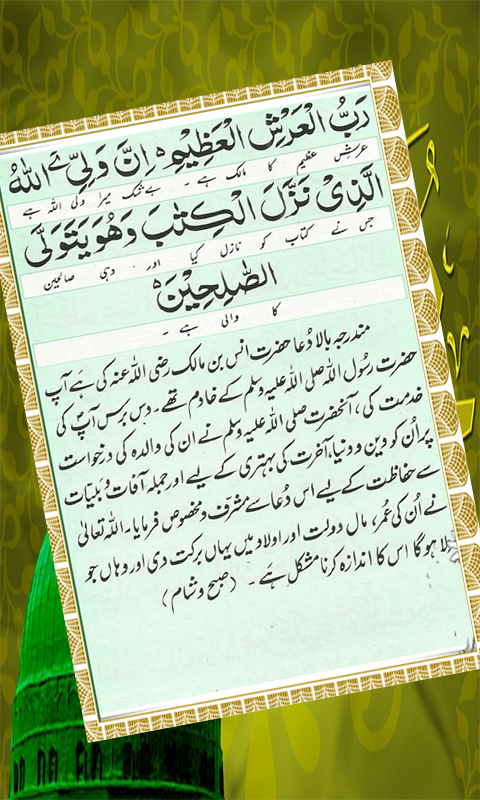 رَبُّ الْعَرْشِ الْعَظِيْمِ ہ اِنَّ وَلِیِّ ےَ اللّٰهُ
عرش عظیم کا مالک ہے ۔ بے شک میرا ولی اللہ ہے
الَّذِیْ نَزَّلَ الْكِتٰبَ وَهُوَ يَتَوَلَّی
جس نے کتاب کو نازل کیا اور وہی صالحین
الصّٰلِحِيْنَ ہ
کا والی ہے ۔
مندرجہ بالا دُعا حضرت انس بن مالک رضی اللہ عنہ کی ہے آپ
حضرت رسُول اللہ صلی اللہ علیہ وسلم کے خادم تھے ۔ دس برس آپؐ کی
خدمت کی ، آنحضرت صلی اللہ علیہ وسلم نے ان کی والدہ کی درخواست
پر اُن کو دین و دنیا ، آخرت کی بہتری کے لیے اور جملہ آفات و بلیّات
سے حفاظت کے لیے اس دُعا سے مشرّف و مخصوص فرمایا ۔ اللہ تعالیٰ
نے اُن کی عُمر ، مال دولت اور اولاد میں یہاں برکت دی اور وہاں جو
لا ہوگا اس کا اندازہ کرنا مشکل ہے ۔ (صبح و شام)